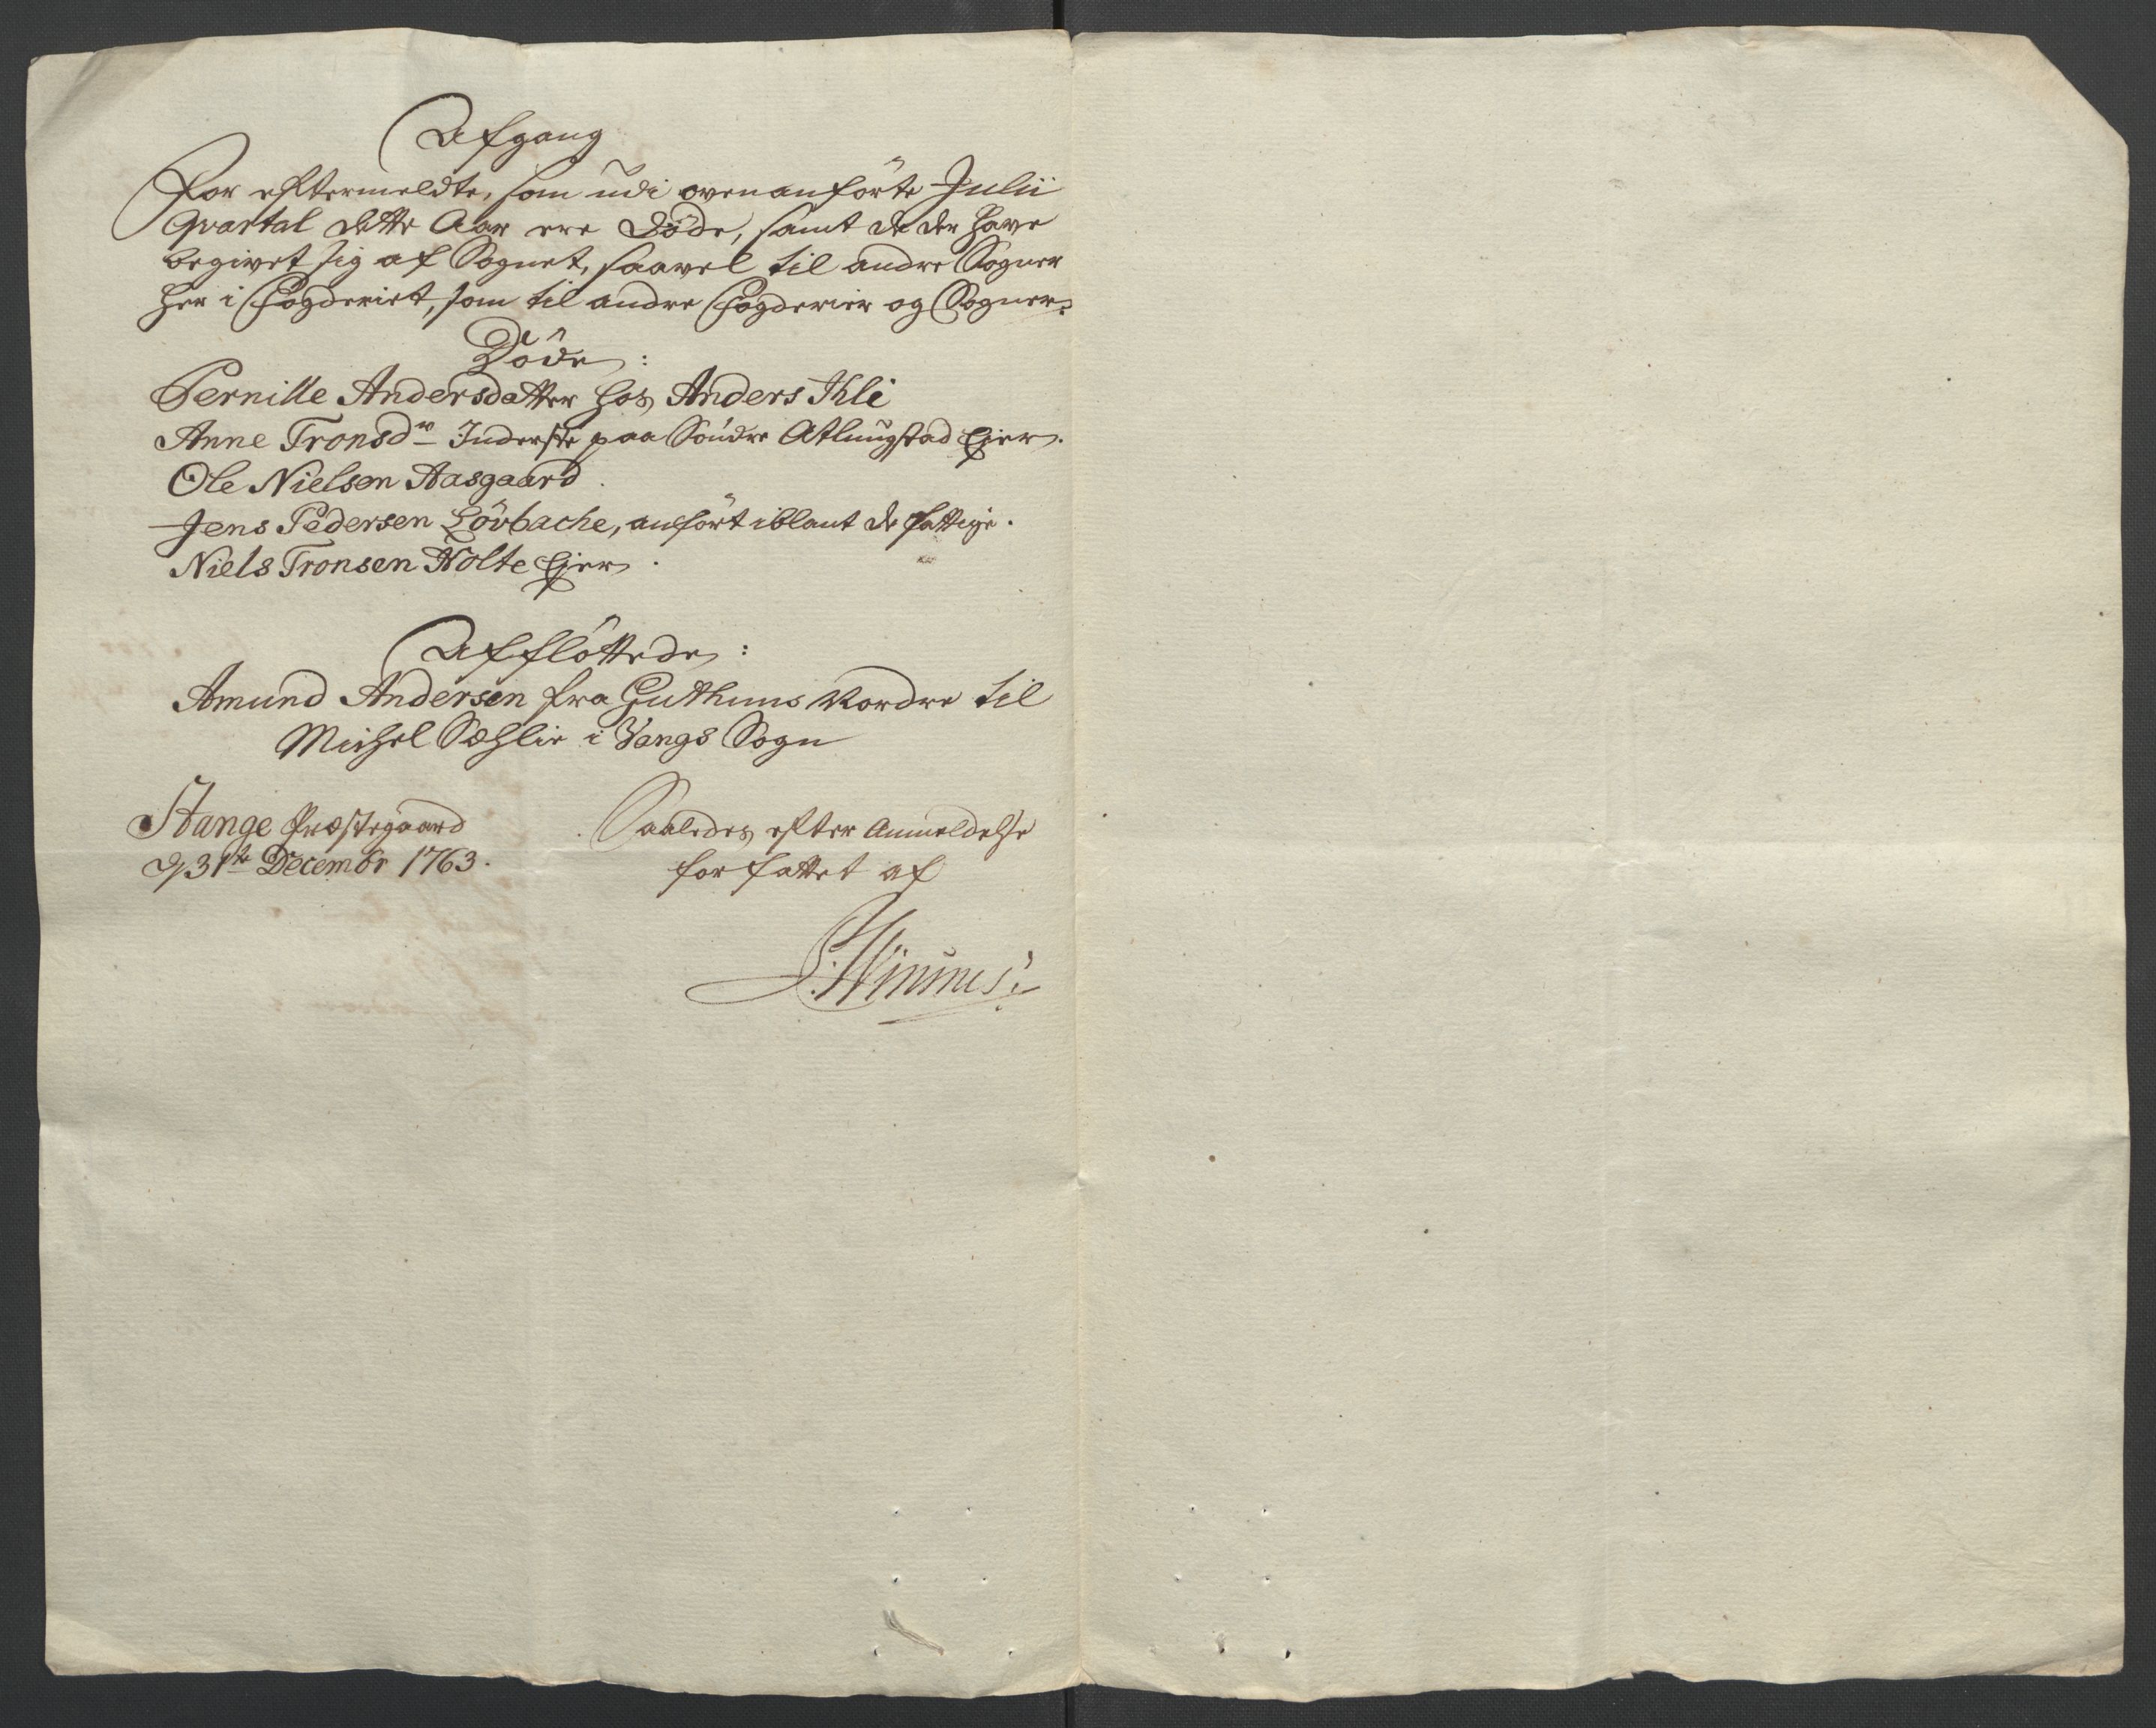 Afgang
For eftermeldte, som udi ovenanførte Julii
Qvartal dette Aar ere Døde, samt de der have
begivet sig af Sognet, saavel til andre Sogner
her i Fogderiet, som til andre Fogderier og Sogner.
Døde:
Pernille Andersdatter hos Anders Ihle
Anne Tronsdr Inderste paa Søndre Atlungstad Ejer.
Ole Nielsen Aasgaard.
Jens Pedersen Lövbache, anført iblant de fattige.
Niels Tronsen Holte Ejer.
Afflöttede:
Amund Andersen fra Guthuus Nordre til
Michel Sæhlie i Vangs Sogn
Stange Præstegaard
d 31te Decembr 1763.
Saaledes efter Anmeldelse
forfattet af